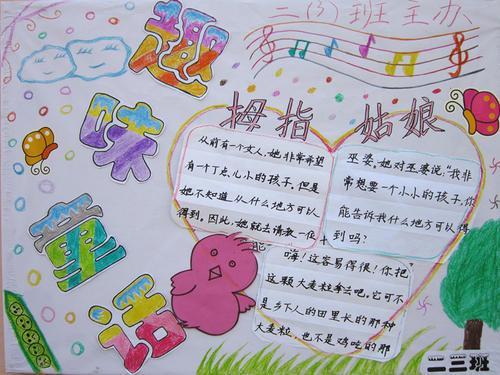 二(3)班主办
趣味童话
拇指姑娘
从前有个女人，她非常希望
有一个丁点儿小的孩子。但是
她不知道从什么地方可以
得到。因此，她就去请教一位
巫婆。她对巫婆说："我非
常想要一个小小的孩子，你
能告诉我什么地方可以得
到吗？
能
嗨！这容易得很！你把
这颗大麦粒拿去吧。它可不
是乡下人的田里长的那种
大麦粒，也不是鸡吃的那
二三班